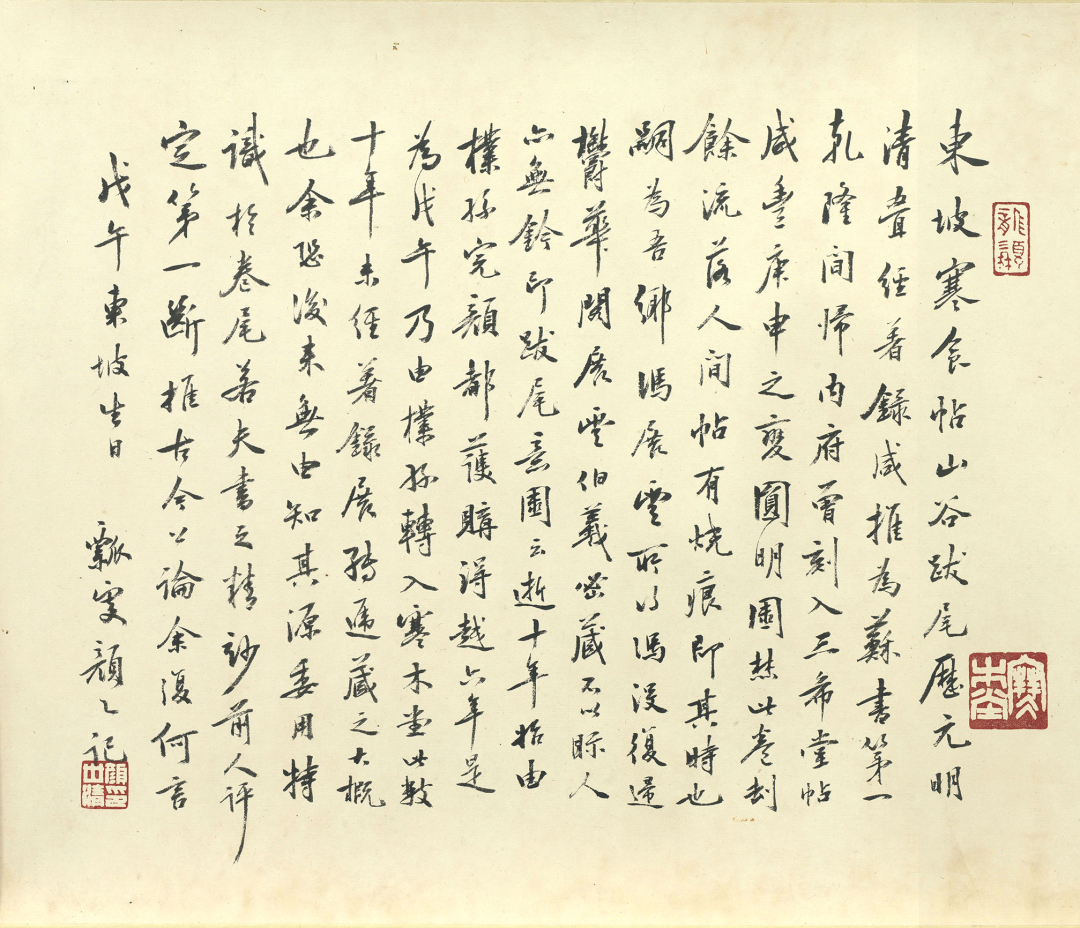 東坡寒食帖山谷跋尾歷元明
清疊經著錄咸推為蘇書第一
乾隆間歸內府曾刻入三希堂帖
咸豐庚申之變圓明園焚此卷刦
餘流落人間帖有燒痕即其時也
嗣為吾鄉馮展雲所得馮沒復歸
鬱華閣展雲伯羲密藏不以眎人
亦無鈐印跋尾意園云逝十年始由
樸孫完顏都護購得越六年是
為戊午乃由樸孫轉入寒木堂此數
十年未經著錄展轉遞藏之大概
也余恐後來無由知其源委用特
識於卷尾若夫書之精妙前人評
定第一斷推古今公論余復何言
戊午東坡生日 瓢叟顏〻記
顏印世清
寒木堂